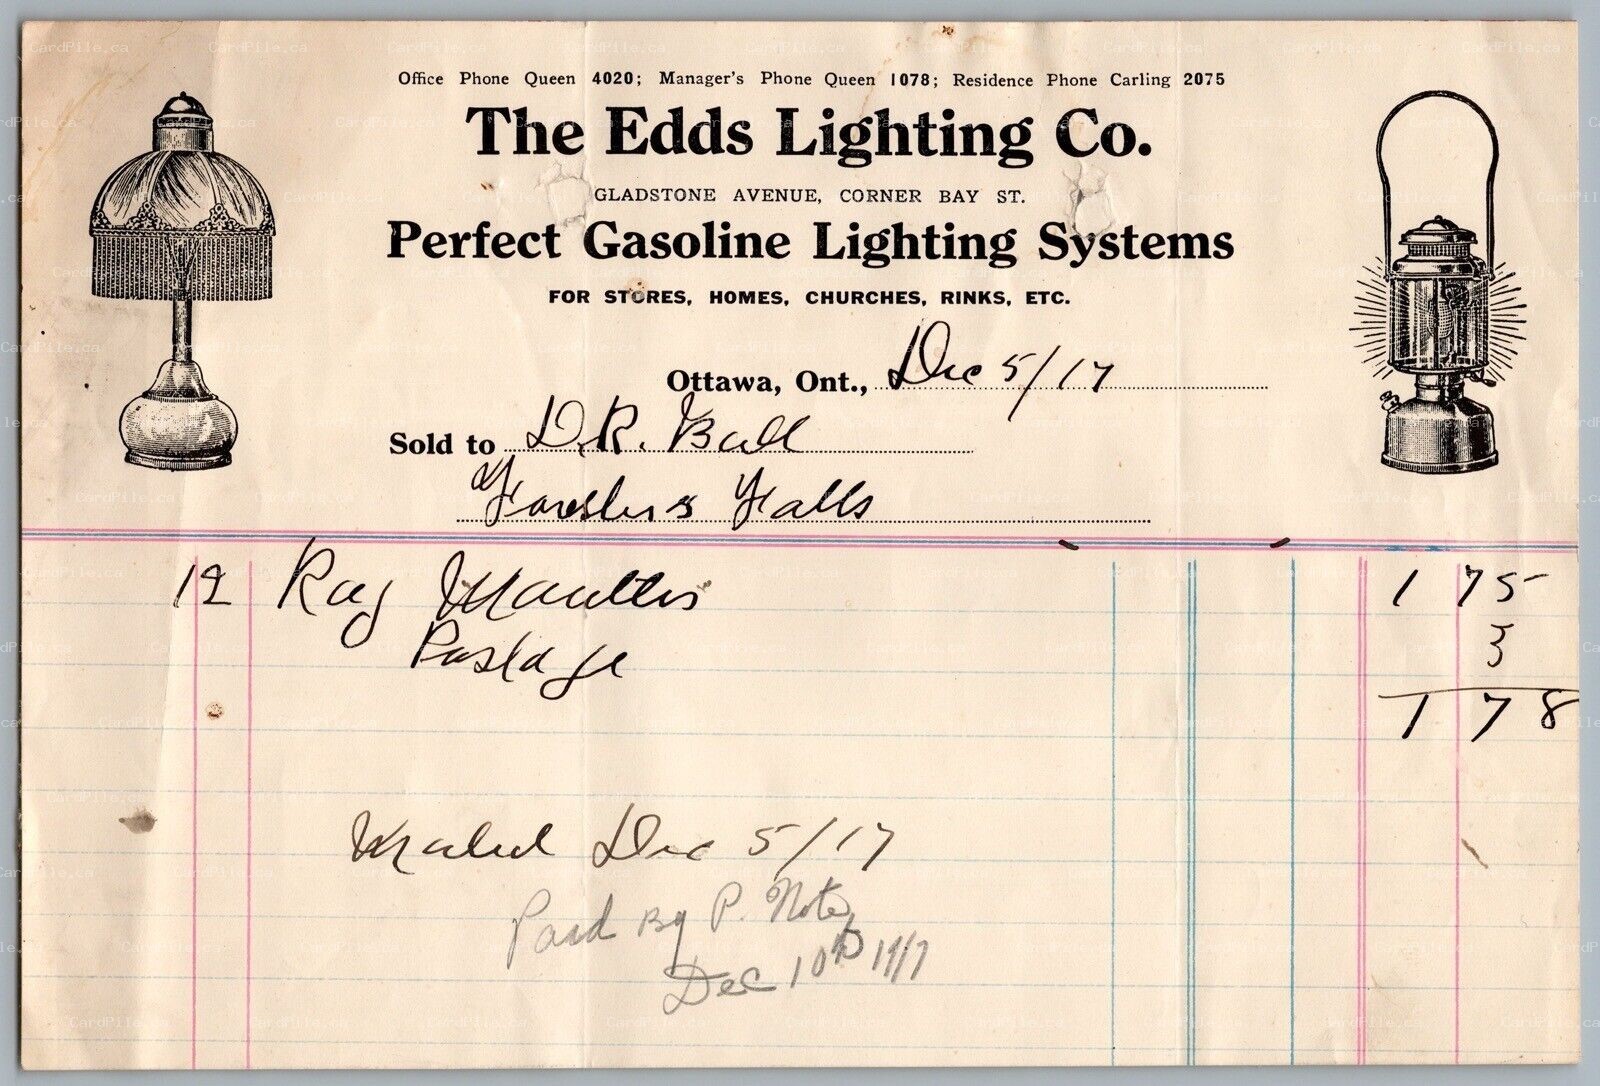 Office Phone Queen 4020; Manager's Phone Queen 1078; Residence Phone Carling 2075
The Edds Lighting Co.
GLADSTONE AVENUE, CORNER BAY ST.
Perfect Gasoline Lighting Systems
FOR STORES, HOMES, CHURCHES, RINKS, ETC.
Ottawa, Ont., Dec 5/17
Sold to D.R. Ball
Foresters Falls
12 Rag Mantles 1 75
Postage 3
1 78
Mailed Dec 5/17
Paid By P. Note
Dec 10th 1917
CardPile.ca